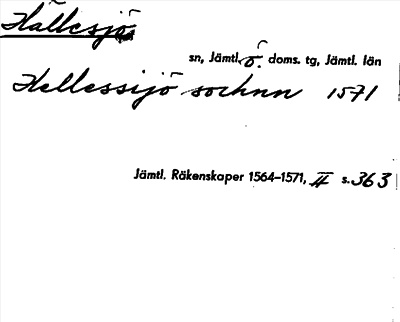 Hällesjö
sn, Jämtl. ö. doms. tg, Jämtl. län
Hellessijö sochnn 1571
Jämtl. Räkenskaper 1564–1571, II s. 363